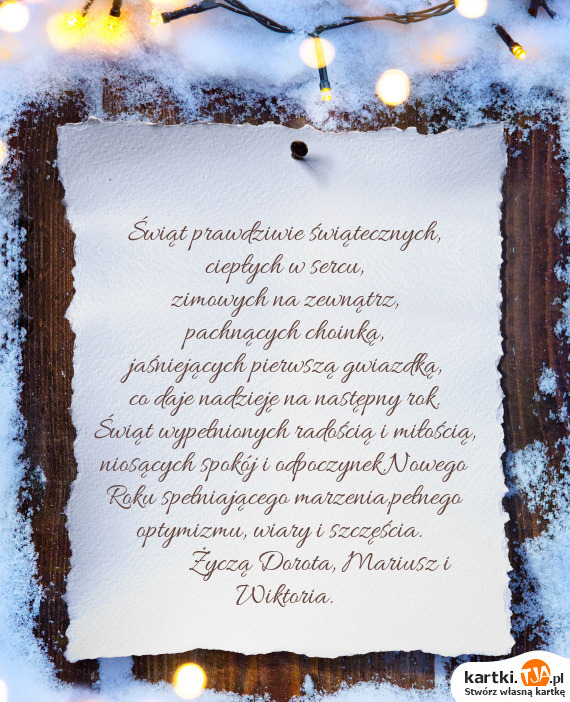 Świąt prawdziwie świątecznych,
ciepłych w sercu,
zimowych na zewnątrz,
pachnących choinką,
jaśniejących pierwszą gwiazdką,
co daje nadzieję na następny rok.
Świąt wypełnionych radością i miłością,
niosących spokój i odpoczynek,Nowego
Roku spełniającego marzenia,pełnego
optymizmu, wiary i szczęścia.
Życzą Dorota, Mariusz i
Wiktoria.
kartki.TJA.pl
Stwórz własną kartkę